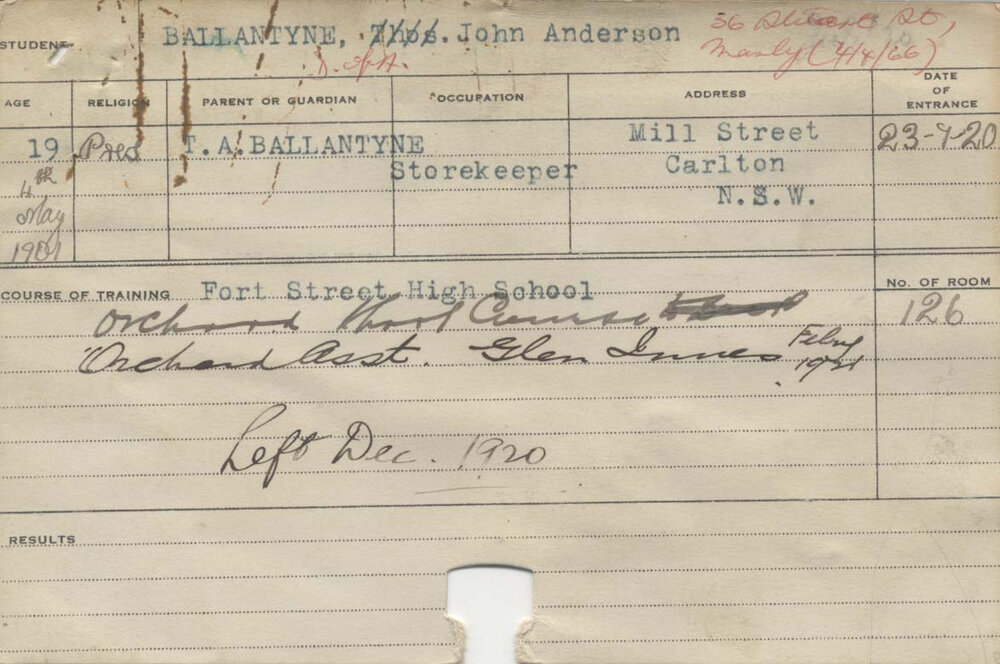 STUDENT BALLANTYNE, Thos. John Anderson
56 St, Manly (4/4/66)
D.of A.
AGE RELIGION PARENT OR GUARDIAN OCCUPATION ADDRESS DATE OF ENTRANCE
19 Pres T. A. BALLANTYNE Storekeeper Mill Street 23-9-20
4th Carlton
May N.S.W.
1901
COURSE OF TRAINING Fort Street High School No. OF ROOM
Orchard Short Course 126
Orchard Asst. Glen Innes Feby 1921
Left Dec. 1920
RESULTS